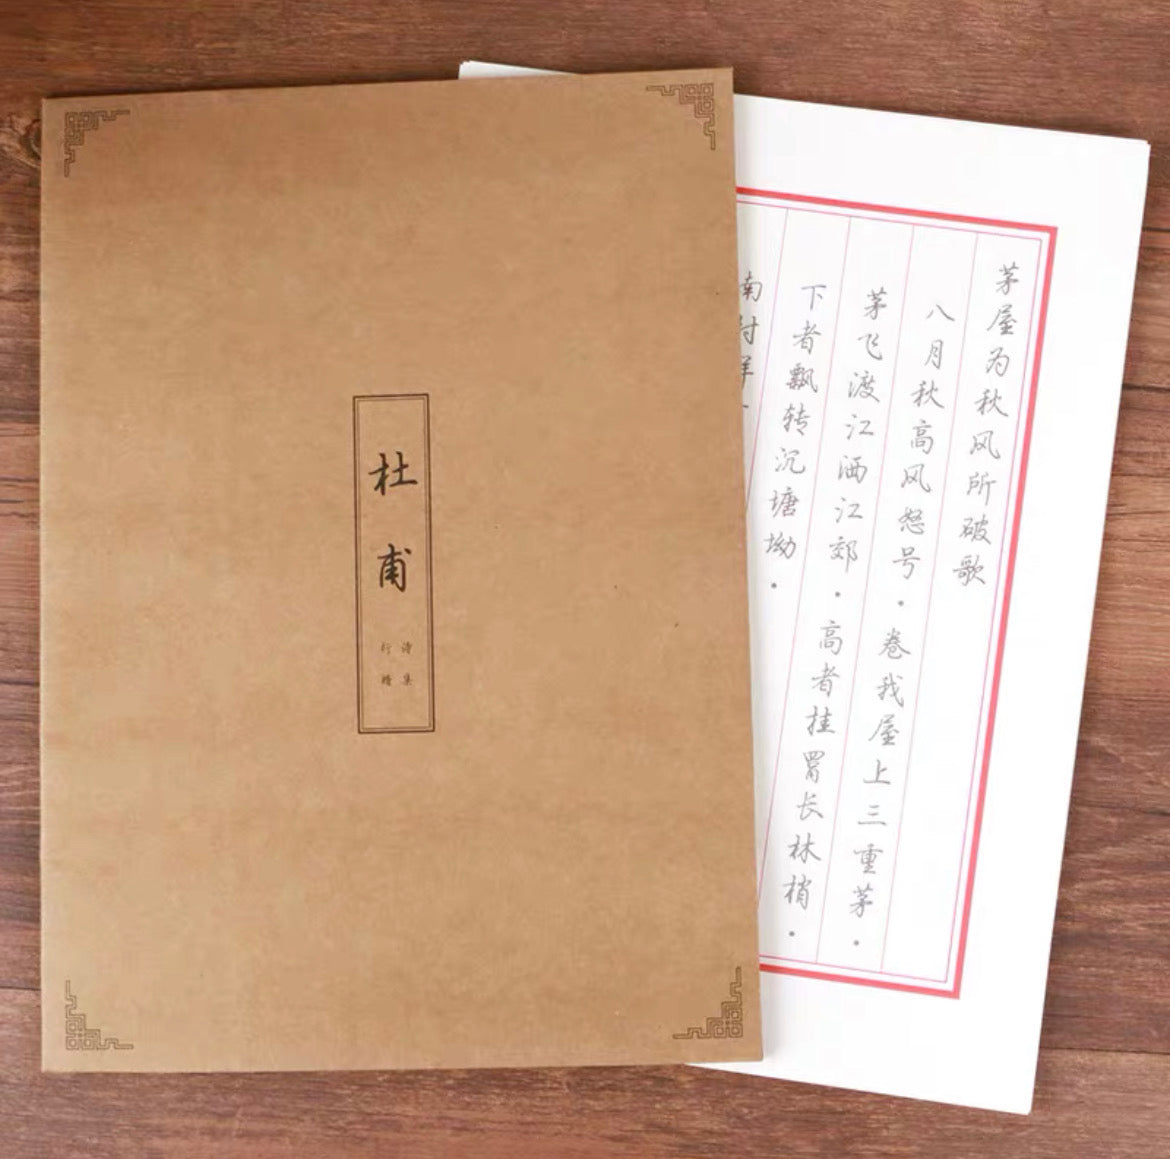 杜甫
诗集
行楷
茅屋为秋风所破歌
八月秋高风怒号·卷我屋上三重茅·
茅飞渡江洒江郊·高者挂罥长林梢·
下者飘转沉塘坳·
南村群